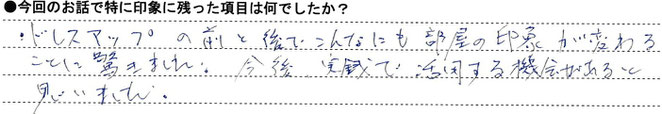 ●今回のお話で特に印象に残った項目は何でしたか？
・ドレスアップの前と後でこんなにも部屋の印象が変わる
ことに驚きました。今後実践で活用する機会があると
思いました。